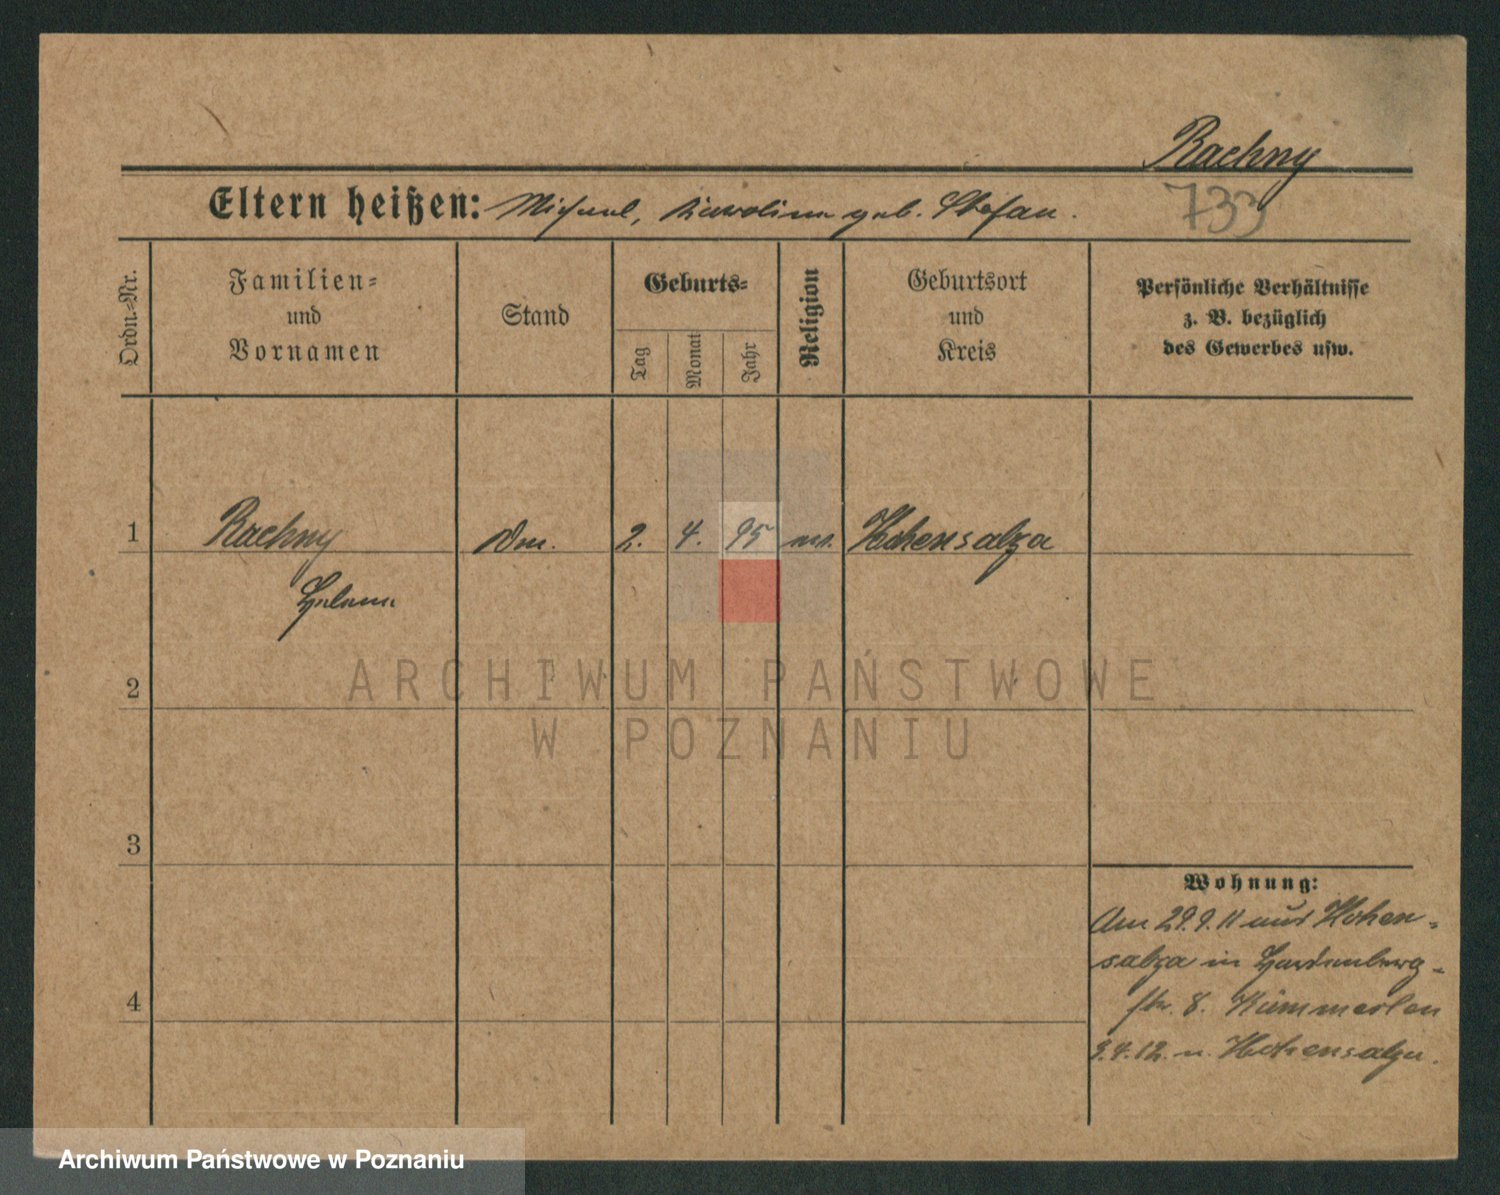 Rachny
Eltern heißen: Michael, Karolina geb. Stefan.
733
Ordn.-Nr.
Familien-
und
Vornamen
Stand
Geburts-
Tag
Monat
Jahr
Religion
Geburtsort
und
Kreis
Persönliche Verhältnisse
z. B. bezüglich
des Gewerbes usw.
1
Rachny
2. 4. 95
Hohensalza
Helene
ARCHIWUM PAŃSTWOWE
W POZNANIU
2
3
4
Wohnung:
Am 29.9.11 aus Hohen-
salza in Hardenberg-
str. 8. Kümmerlen
3.4.12. n. Hohensalza.
Archiwum Państwowe w Poznaniu